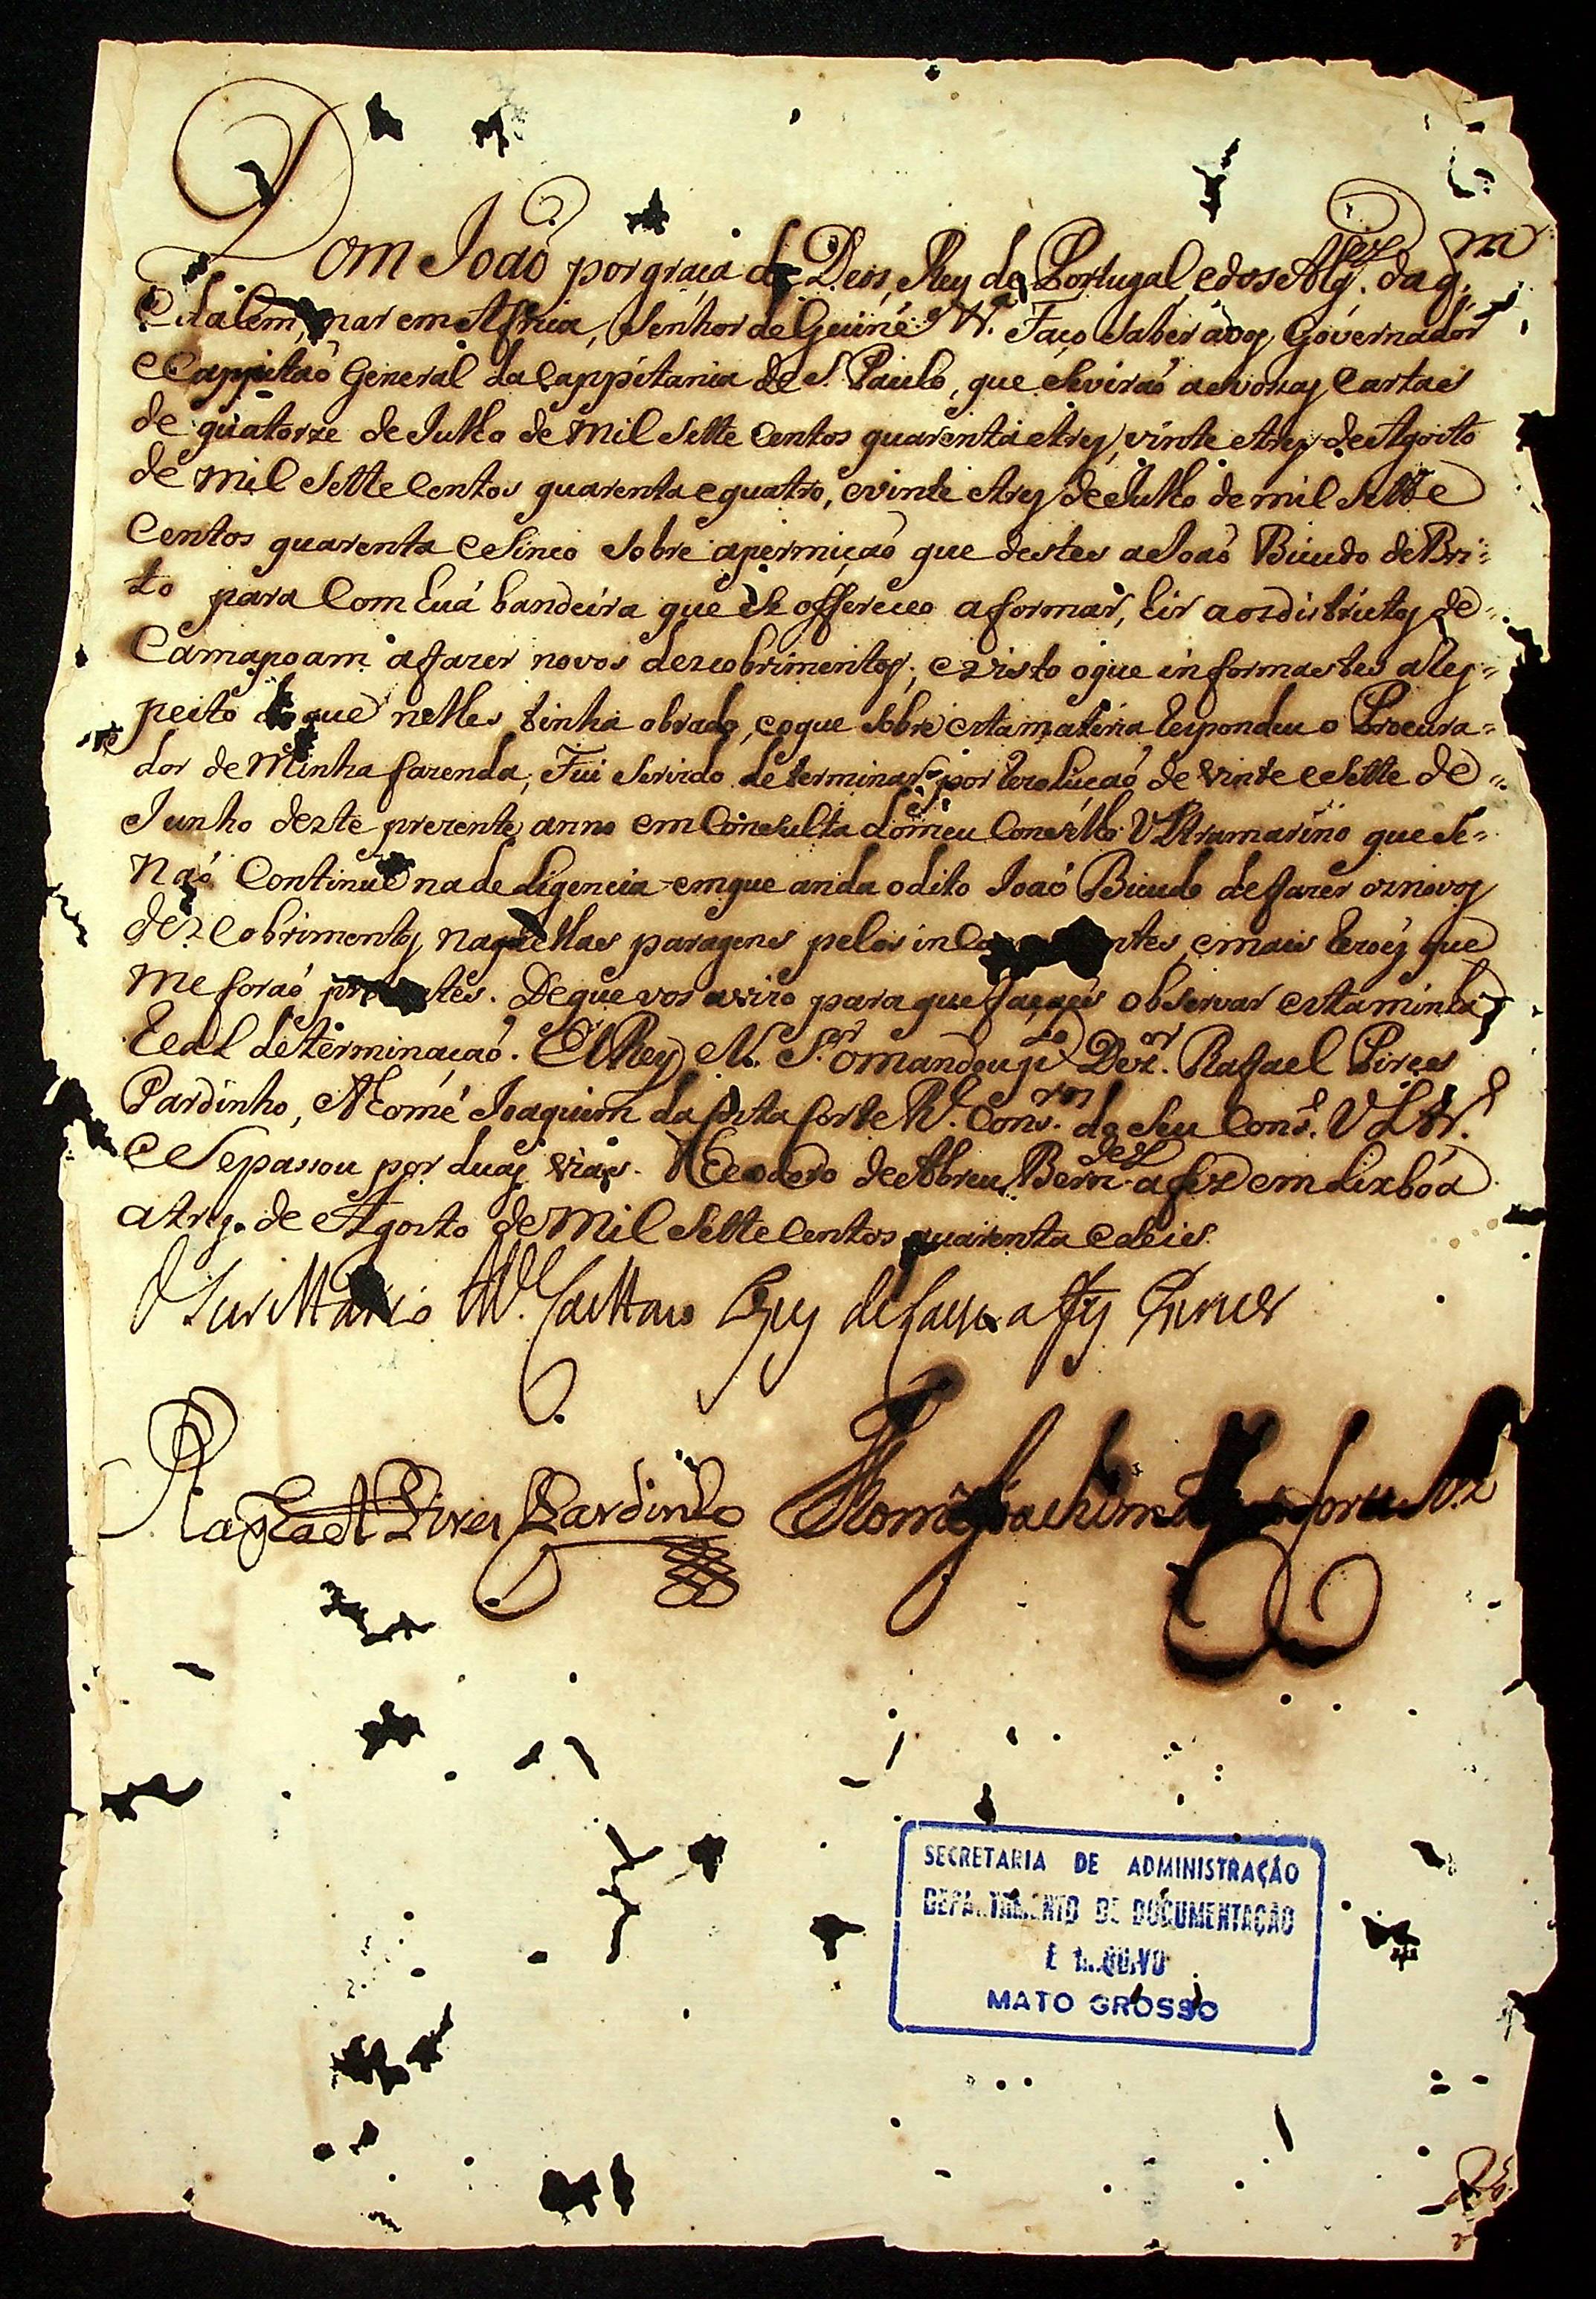 Dom Joaõ por graça de Deos, Rey de Portugal, e dos Alg.ves, daq.m
e dalem, mar em Africa, Senhor de Guiné &.ª Faço saber a vos Governador
e Cappitaõ General da Cappitania de S. Paulo, que se viraõ as vossas Cartas
de quatorze de Julho de mil sette centos quarenta e tres, vinte e tres de Agosto
de mil sette centos quarenta e quatro, e vinte e tres de Julho de mil sette
centos quarenta e sinco sobre a permiçaõ que destes a Joaõ Bicudo de Bri=
to para com huá bandeira que se offereceo a formar, hir aos districtos de=
Camapoam a fazer novos descobrimentos; e visto o que informastes a Res=
peito do que nelles tinha obrado, e o que sobre esta materia respondeu o Procura=
dor de minha fazenda; Fui servido determinar por rezoluçaõ de vinte e sette de=
Junho dezte prezente anno em Consulta do meu Conselho Ultramarino que se=
naõ Continue na deligencia em que anda o dito Joaõ Bicudo de fazer os novos
dezcobrimentos naquellas paragens pelos in ntes, e mais rezoẽs que
me foraõ prezentes. De que vos avizo para que façaes observar esta minha
Real determinaçaõ. ElRey N. S.or o mandou p.lo Dez.or Rafael Pires
Pardinho, e Thomé Joaquim da Costa Corte R.l Cons.ros do seu Cons.º Ultr.º
e se passou por duas vias. Theodoro de Abreu Bern.des a fez em Lixboa
a tres de Agosto de mil sette centos quarenta e seis.
O Secrettario M.el Caettano Lopes de Lavre a fez escrever
Raphael Pires Pardinho Thomé Joachim da Costa Corte R.l
SECRETARIA DE ADMINISTRAÇÃO
DEPARTAMENTO DE DOCUMENTAÇÃO
E ARQUIVO
MATO GROSSO